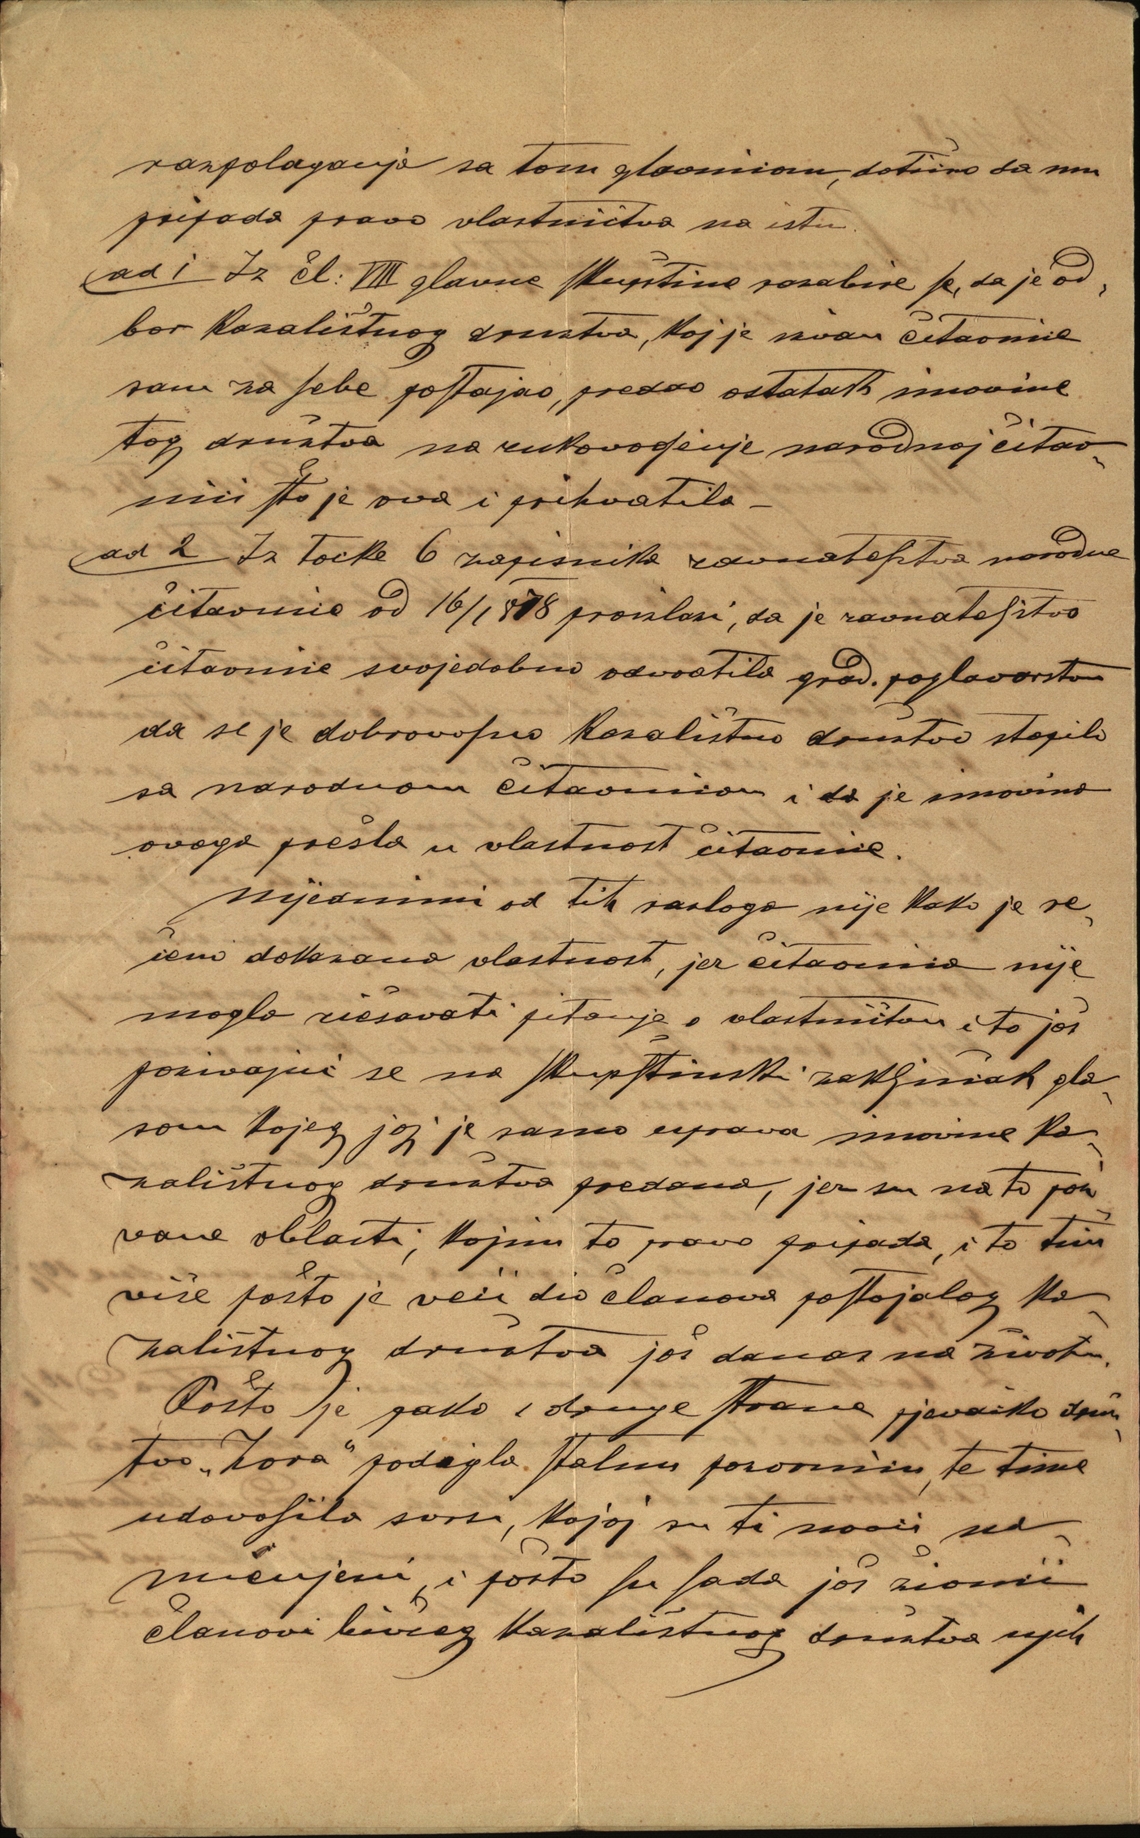 razpolaganja sa tom glavnicom, dotično da mu
pripada pravo vlastničtva na istu.
ad 1 Iz čl: VIII glavne skupštine razabire se, da je od,
bor kazalištnog družtva, koj je izvan čitaonice
sam za sebe postajao, predao ostatak imovine
tog družtva na rukovodjenje narodnoj čitao,
nici što je ova i prihvatila –
ad 2 Iz točke 6 zapisnika ravnateljstva narodne
čitaonice od 16/1 878 proizlazi, da je ravnateljstvo
čitaonice svojedobno odvratila grad. poglavarstvu
da se je dobrovoljno kazalištno družtvo stopilo
sa narodnom čitaonicom i da je imovina
ovoga prešla u vlastnost čitaonice.
Nijednimi od tih razloga nije kako je re,
čeno dokazana vlastnost, jer čitaonica nije
mogla riešavati pitanje o vlastničtvu i to još
pozivajuć se na skupštinski zaključak gla,
som kojeg joj je samo uprava imovine ka,
zalištnog družtva predana, jer su na to poz,
vane oblasti, kojim to pravo pripada, i to tim
više pošto je veći dio članova postojalog ka,
zalištnog družtva još danas na životu.
Pošto je pako s druge strane pjevačko druž,
tvo „Zora“ podigla stalnu pozornicu, te time
udovoljila svrsi, kojoj su ti novci na,
mienjeni, i pošto su sada još živući
članovi bivšeg kazalištnog družtva njih